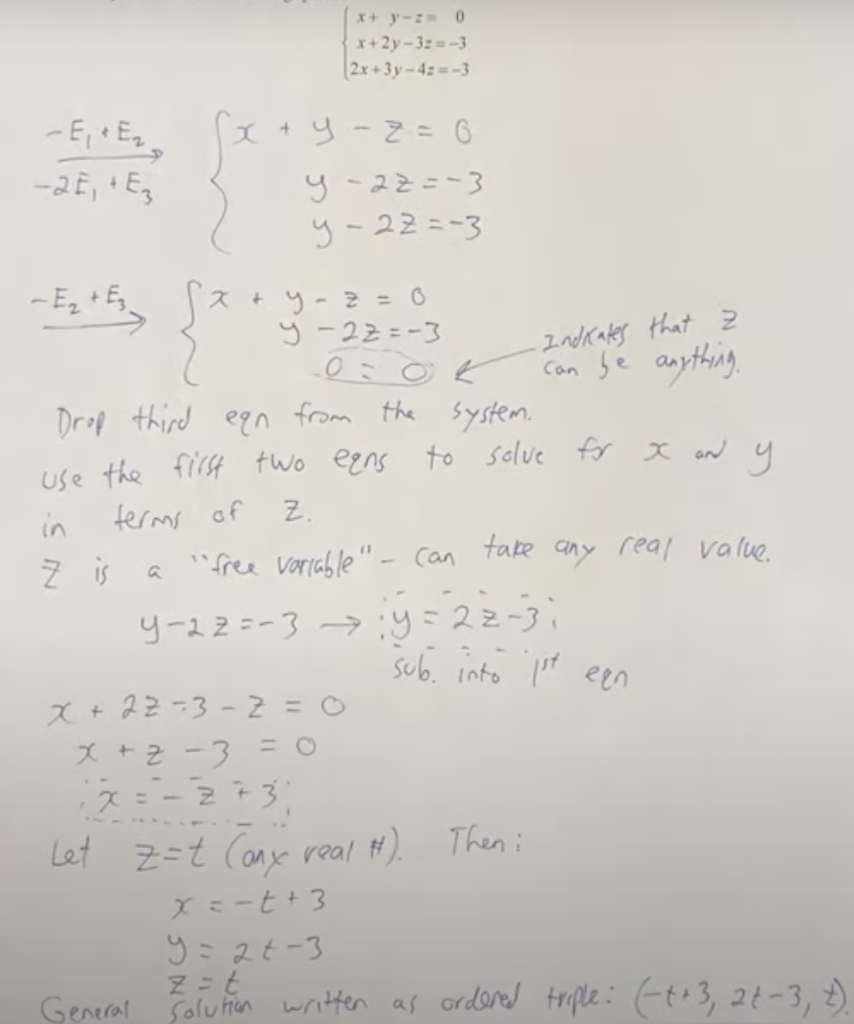 x + y - z = 0
x + 2y - 3z = -3
2x + 3y - 4z = -3
-E₁ + E₂
-2E₁ + E₃
x + y - z = 0
y - 2z = -3
y - 2z = -3
-E₂ + E₃
x + y - z = 0
y - 2z = -3
0 = 0
Indicates that z
can be anything.
Drop third eqn from the system.
use the first two eqns to solve for x and y
in terms of z.
z is a "free variable" - can take any real value.
y - 2z = -3 → y = 2z - 3
sub. into 1st eqn
x + 2z - 3 - z = 0
x + z - 3 = 0
x = -z + 3
Let z = t (any real #). Then:
x = -t + 3
y = 2t - 3
z = t
General solution written as ordered triple: (-t+3, 2t-3, t).